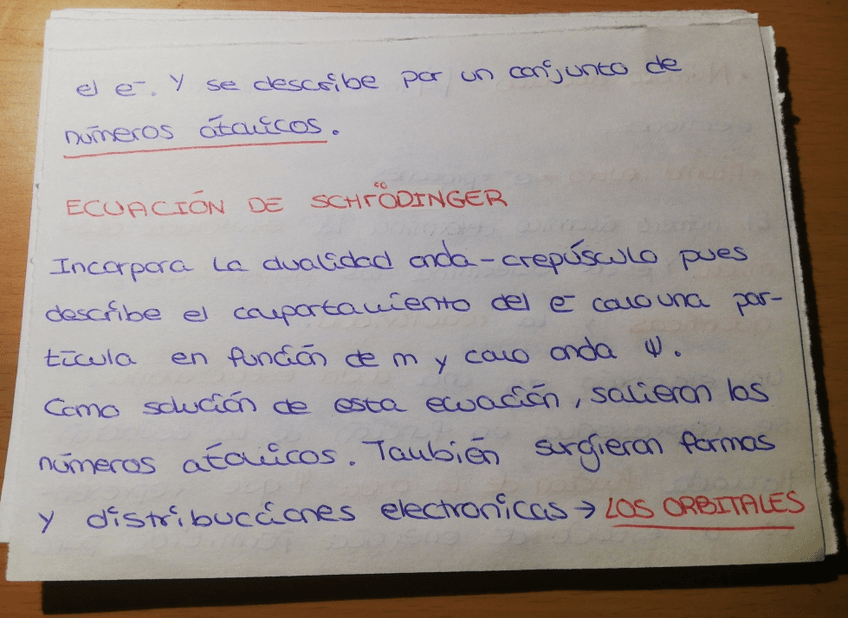 el e⁻. Y se describe por un conjunto de
números átomicos.
ECUACIÓN DE SCHRÖDINGER
Incorpora la dualidad onda-crepúsculo pues
describe el comportamiento del e⁻ como una par-
tícula en función de m y como onda ψ.
Como solución de esta ecuación, salieron los
números atómicos. También surgieron formas
y distribucciones electronicas → LOS ORBITALES